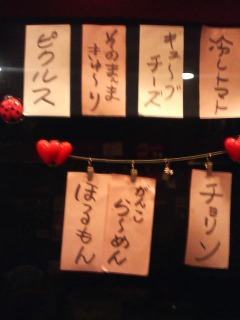 冷しトマト
キューブ
チーズ
そのまんま
きゅーり
ピクルス
チョリソ
がんこ
らーめん
ほるもん